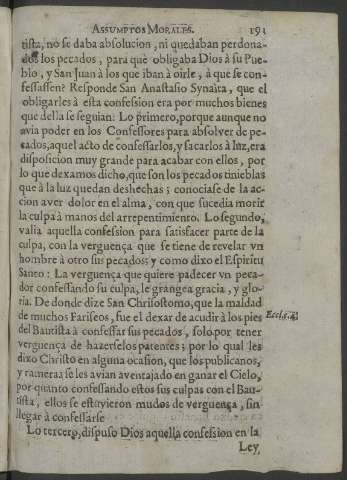 ASSUMPTOS MORALES. 191
tista, no se daba absolucion, ni quedaban perdona-
dos los pecados, para què obligaba Dios à su Pue-
blo, y San Juan à los que iban à oirle, à que se con-
fessassen? Responde San Anastasio Synaita, que el
obligarles à esta confession era por muchos bienes
que della se seguian: Lo primero, porque aunque no
avia poder en los Confessores para absolver de pe-
cados, aquel acto de confessarlos, y sacarlos à luz, era
disposicion muy grande para acabar con ellos, por
lo que dexamos dicho, que son los pecados tinieblas
que à la luz quedan deshechas; conociase de la ac-
cion aver dolor en el alma, con que sucedia morir
la culpa à manos del arrepentimiento. Lo segundo,
valia aquella confession para satisfacer parte de la
culpa, con la verguença que se tiene de revelar vn
hombre à otro sus pecados; y como dixo el Espiritu
Santo: La verguença que quiere padecer vn peca-
dor confessando su culpa, le grangea gracia, y glo-
ria. De donde dize San Chrisostomo, que la maldad
de muchos Fariseos, fue el dexar de acudir à los pies
Eccls. 4.
del Bautista à confessar sus pecados, solo por tener
verguença de hazerselos patentes; por lo qual les
dixo Christo en alguna ocasion, que los publicanos,
y rameras se les avian aventajado en ganar el Cielo,
por quanto confessando estos sus culpas con el Bau-
tista, ellos se estuvieron mudos de verguença, sin
llegar à confessarse
Lo tercero, dispuso Dios aquella confession en la
Ley